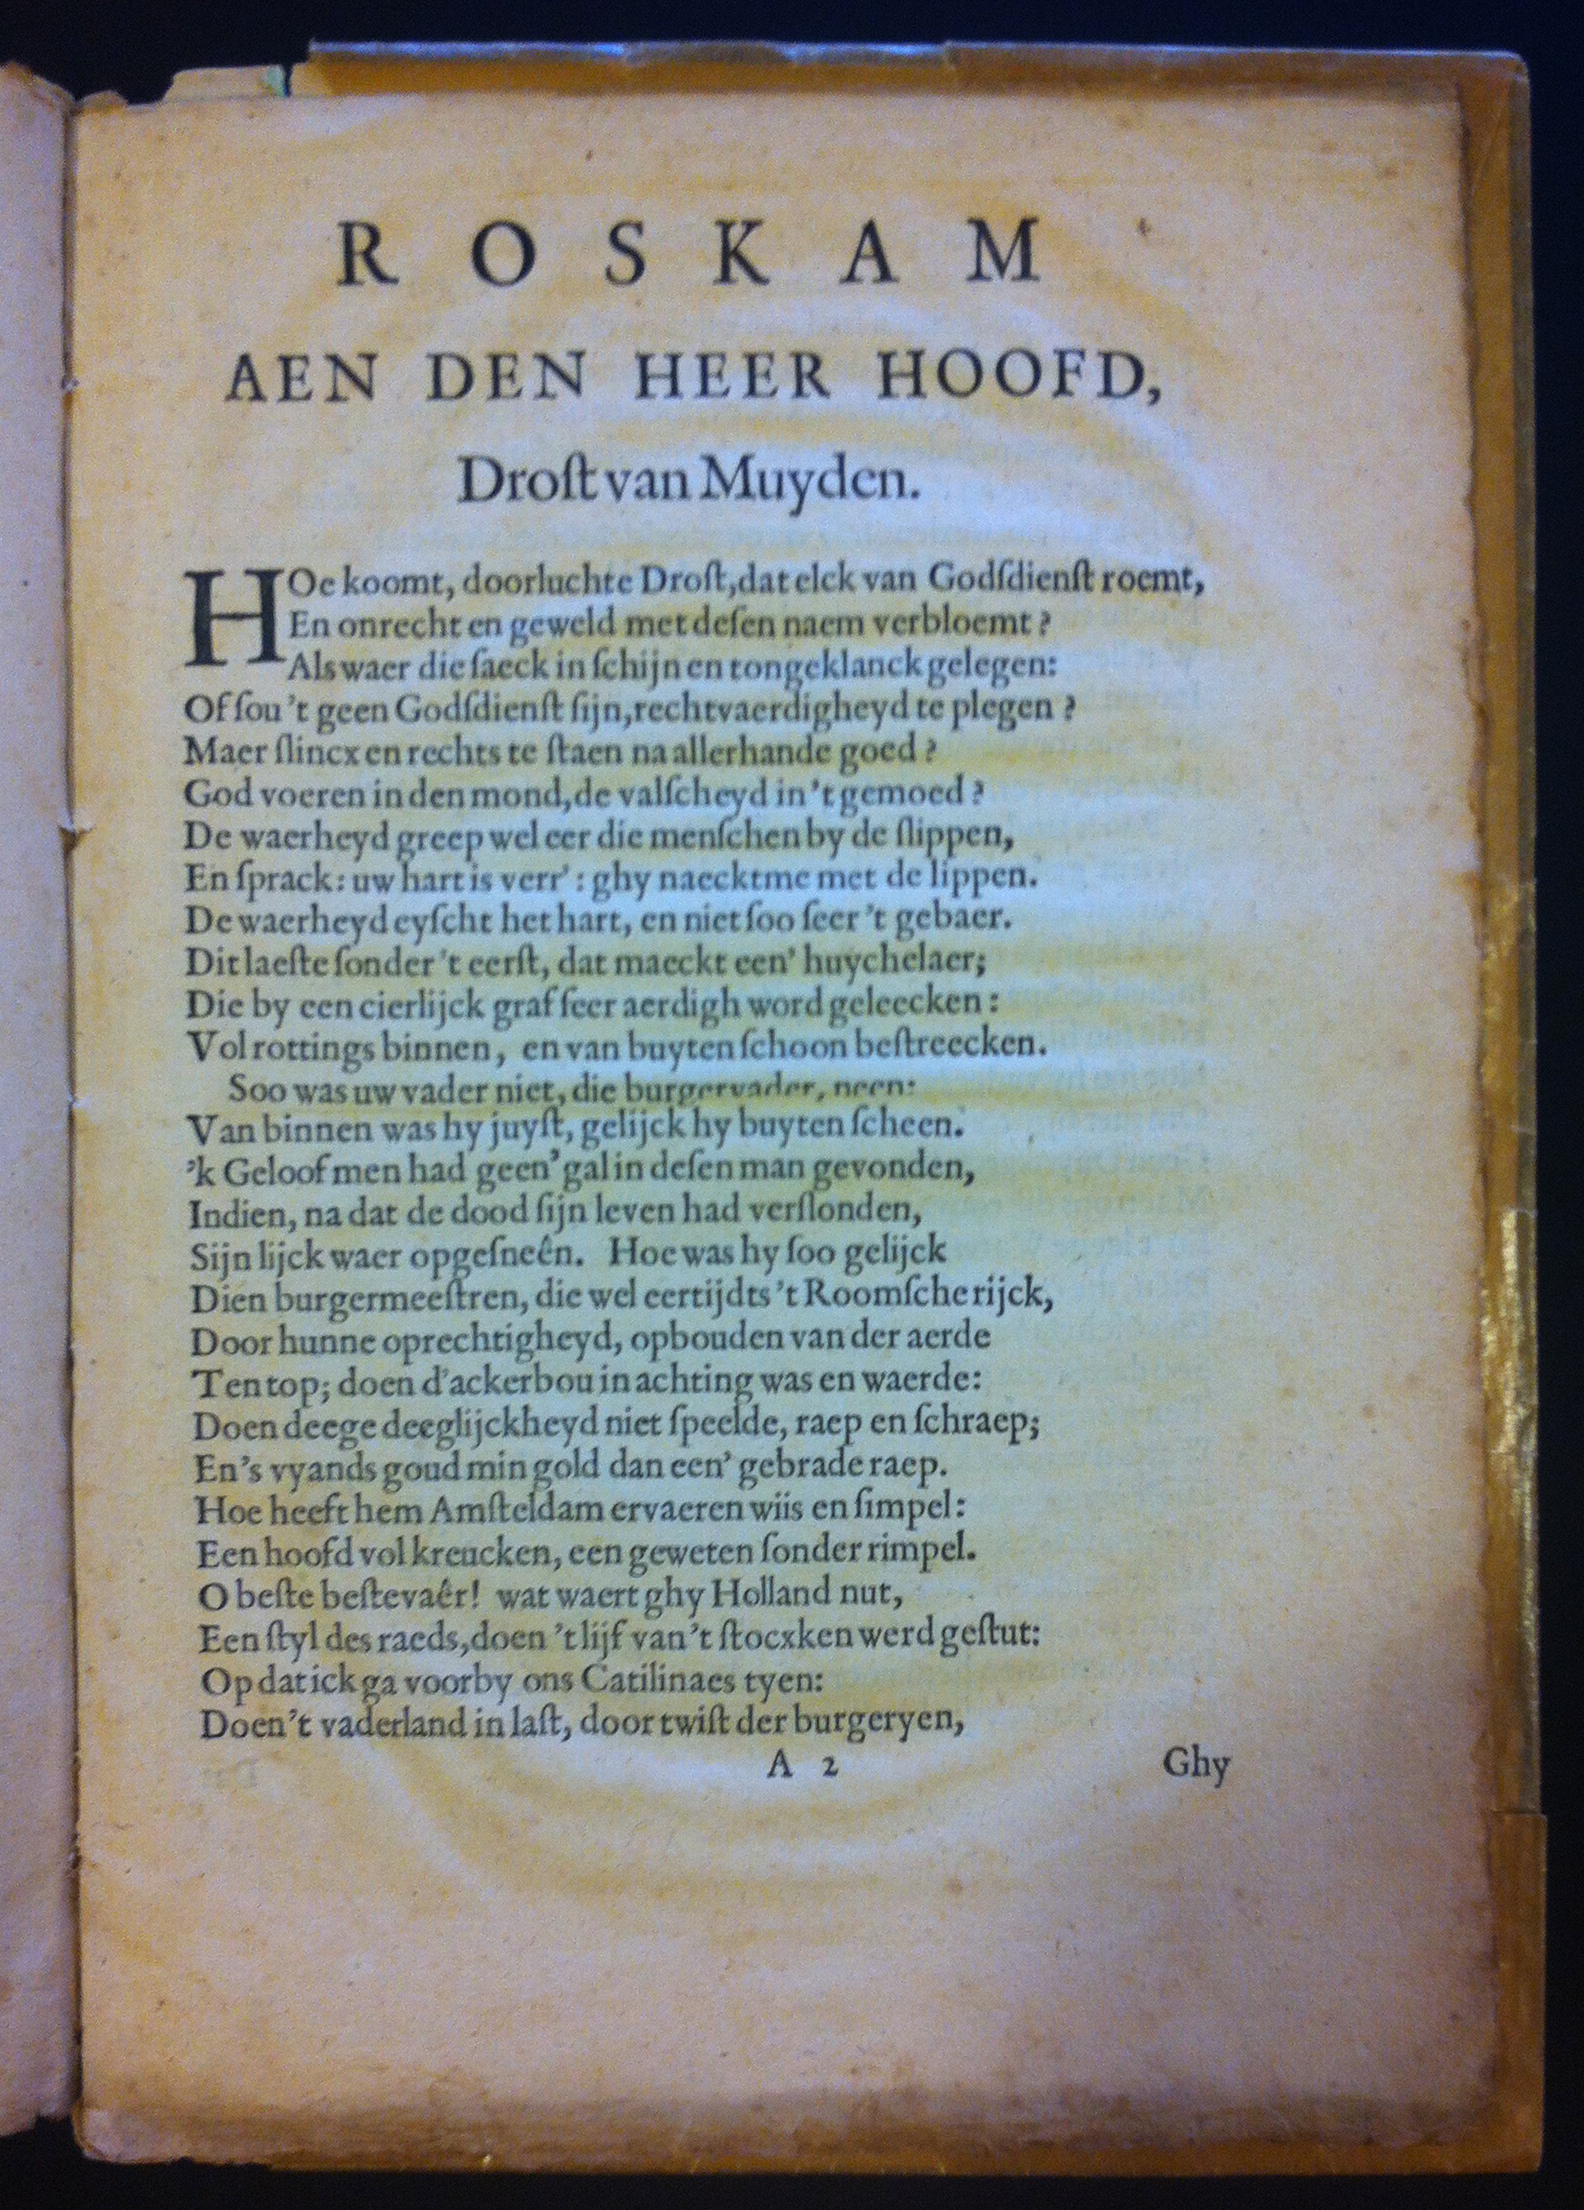 ROSKAM
AEN DEN HEER HOOFD,
Droſt van Muyden.
HOe koomt, doorluchte Droſt, dat elck van Godſdienſt roemt,
En onrecht en geweld met deſen naem verbloemt?
Als waer die ſaeck in ſchijn en tongeklanck gelegen:
Of ſou 't geen Godſdienſt ſijn, rechtvaerdigheyd te plegen?
Maer ſlincx en rechts te ſtaen na allerhande goed?
God voeren in den mond, de valſcheyd in 't gemoed?
De waerheyd greep wel eer die menſchen by de ſlippen,
En ſprack: uw hart is verr': ghy naecktme met de lippen.
De waerheyd eyſcht het hart, en niet ſoo ſeer 't gebaer.
Dit laeſte ſonder 't eerſt, dat maeckt een' huychelaer;
Die by een cierlijck graf ſeer aerdigh word geleecken:
Vol rottings binnen, en van buyten ſchoon beſtreecken.
Soo was uw vader niet, die burgervader, neen:
Van binnen was hy juyſt, gelijck hy buyten ſcheen.
'k Geloof men had geen' gal in deſen man gevonden,
Indien, na dat de dood ſijn leven had verſlonden,
Sijn lijck waer opgeſneên. Hoe was hy ſoo gelijck
Dien burgermeeſtren, die wel eertijdts 't Roomſche rijck,
Door hunne oprechtigheyd, opbouden van der aerde
Ten top; doen d'ackerbou in achting was en waerde:
Doen deege deeglijckheyd niet ſpeelde, raep en ſchraep;
En 's vyands goud min gold dan een' gebrade raep.
Hoe heeft hem Amſteldam ervaeren wiis en ſimpel:
Een hoofd vol kreucken, een geweten ſonder rimpel.
O beſte beſtevaêr! wat waert ghy Holland nut,
Een ſtyl des raeds, doen 't lijf van 't ſtocxken werd geſtut:
Op dat ick ga voorby ons Catilinaes tyen:
Doen 't vaderland in laſt, door twiſt der burgeryen,
A 2 Ghy